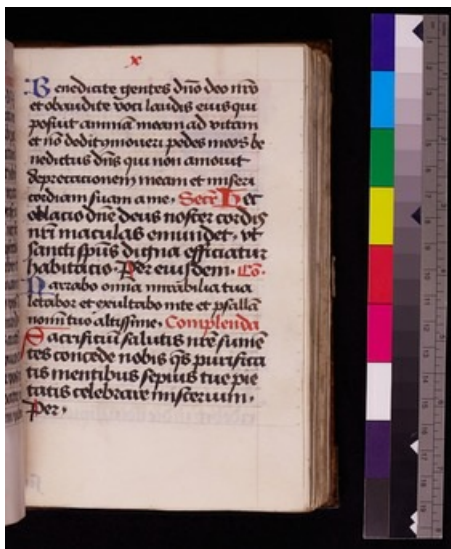 x
Benedicite gentes dño deo nr̃o
et obaudite voci laudis eius qui
posuit animã meam ad vitam
et nõ dedit ῥmoueri pedes meos be
nedictus dñs qui non amouit
deprecationem meam et miseri
cordiam suam a me. Secr̃ Hec
oblacio dñe deus noster cordis
nr̃i maculas emundet. vt
sancti sp̃us digna efficiatur
habitatio. Per eiusdem. Cõ.
Narrabo omia mirabilia tua
letabor et exultabo in te et psallã
nomĩ tuo altissime. Complenda
Sacrificii salutis nr̃e sumẽ
tes concede nobis q̃s purifica
tis mentibus sepius tue pie
tatis celebrare misterium.
Per.